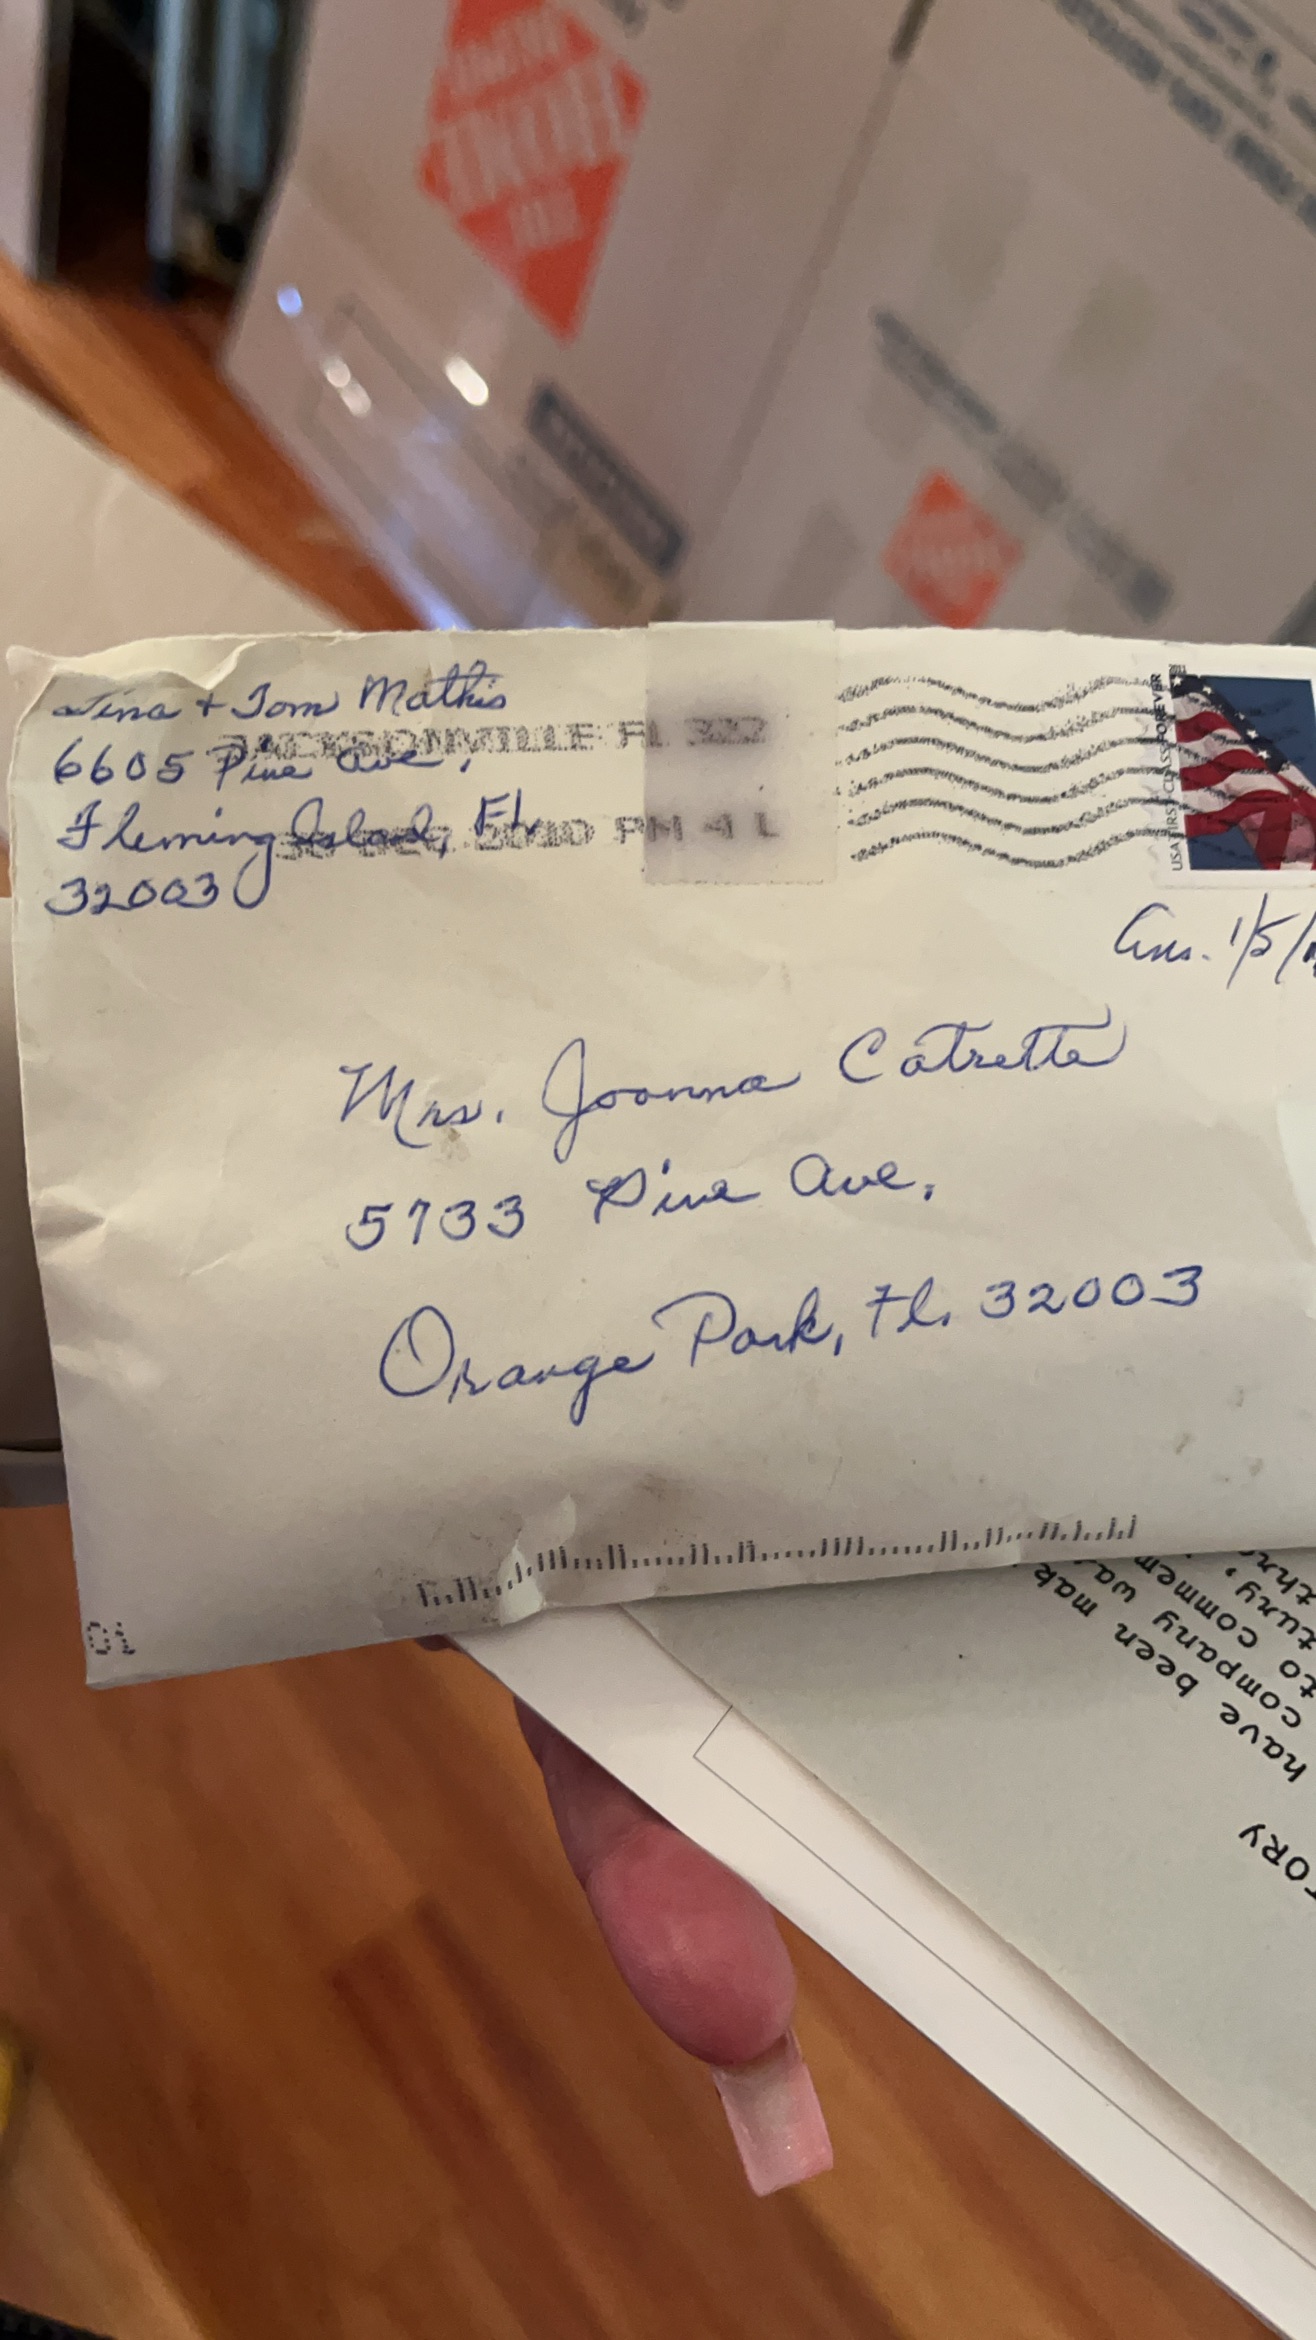 THE
HOME
Tina + Tom Mathis
6605 Pine Ave,
Fleming Island, FL
32003
JACKSONVILLE FL 322
30 DEC 2010 PM 4 L
USA FIRST-CLASS FOREVER
Ans. 1/5/
Mrs. Joanna Catrette
5733 Pine Ave,
Orange Park, Fl. 32003
01
have been mak
company wa
to commem
tury,
thr
TORY